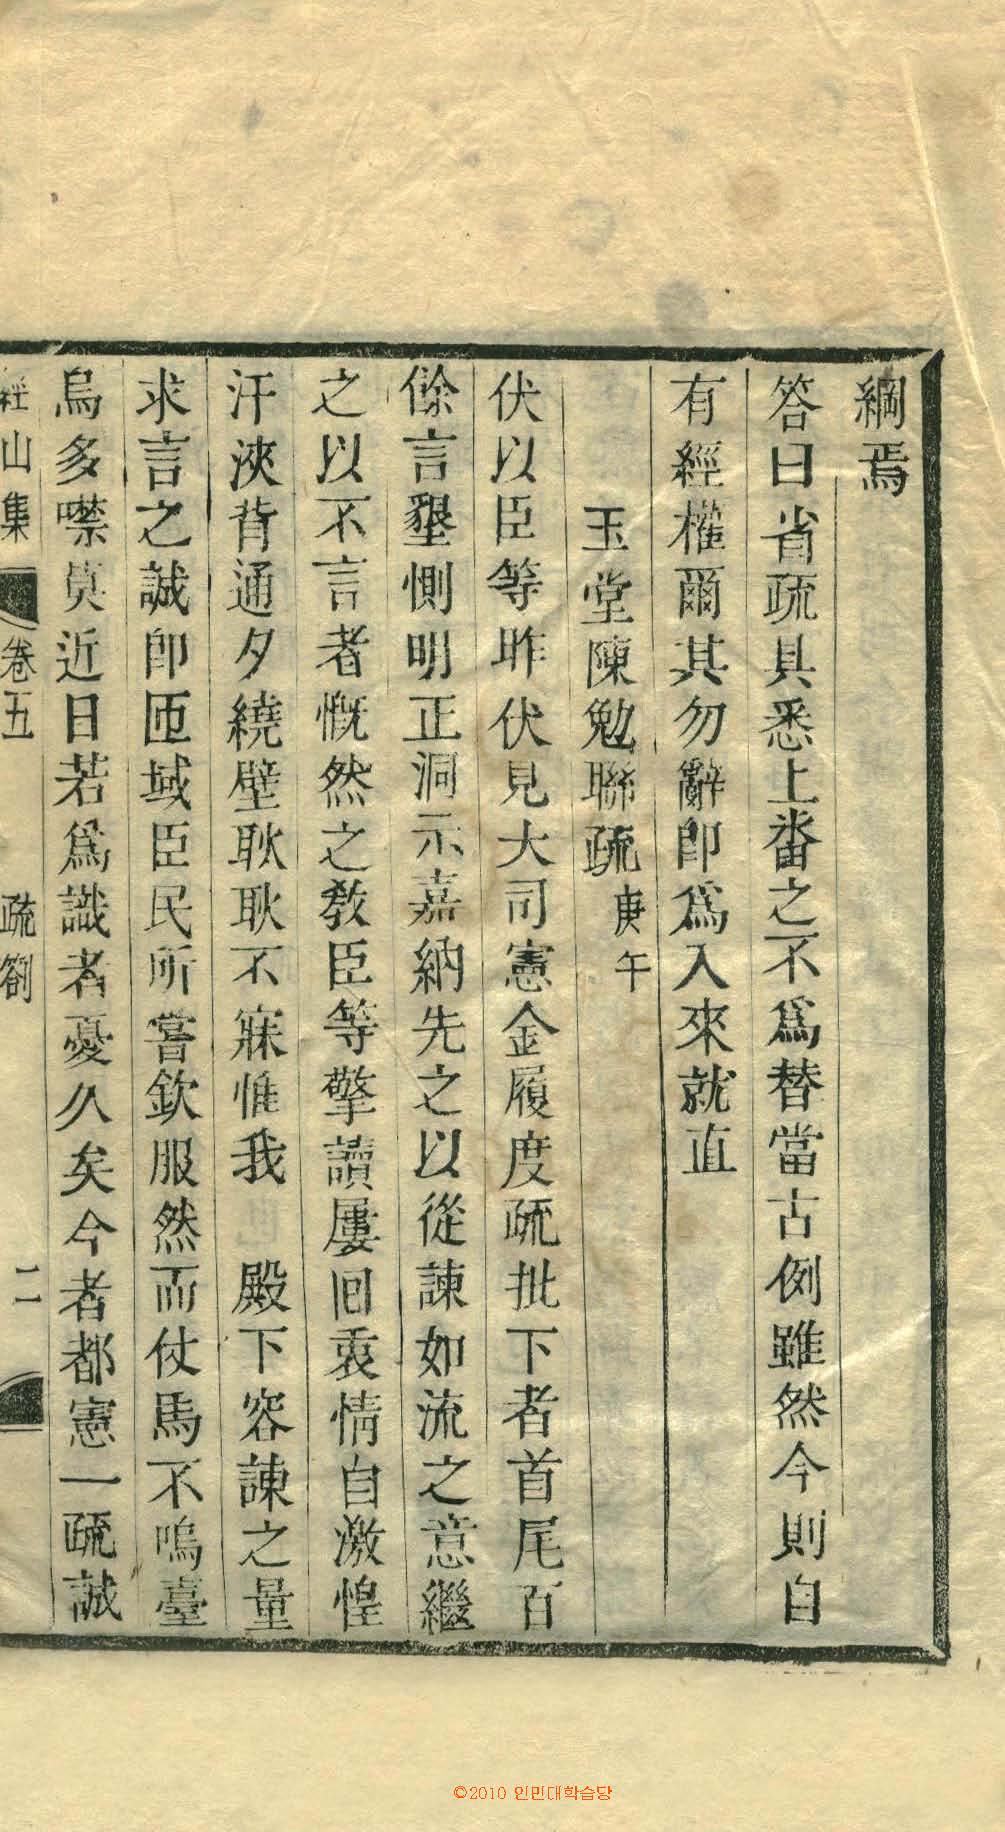 綱焉
答曰省疏具悉上番之不爲替當古例雖然今則自
有經權爾其勿辭卽爲入來就直
玉堂陳勉聯疏庚午
伏以臣等昨伏見大司憲金履度疏批下者首尾百
餘言懇惻明正洞示嘉納先之以從諫如流之意繼
之以不言者慨然之敎臣等擎讀屢回衷情自激惶
汗浹背通夕繞壁耿耿不寐惟我 殿下容諫之量
求言之誠卽匝域臣民所嘗欽服然而仗馬不鳴臺
烏多噤莫近日若爲識者憂久矣今者都憲一疏誠
社山集 卷五 疏劄 二
©2010 인민대학습당